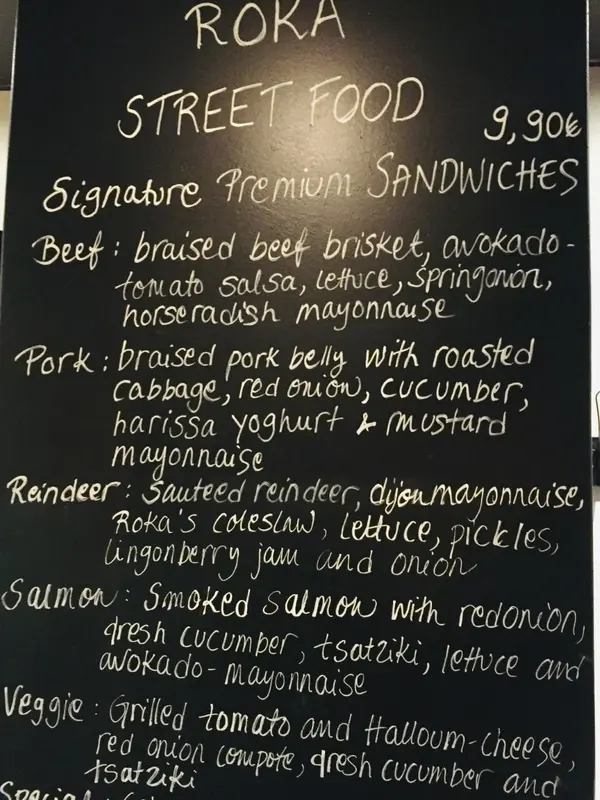 ROKA
STREET FOOD
9,90€
Signature Premium SANDWICHES
Beef: braised beef brisket, avokado-
tomato salsa, lettuce, springonion,
horseradish mayonnaise
Pork: braised pork belly with roasted
cabbage, red onion, cucumber,
harissa yoghurt & mustard
mayonnaise
Reindeer: Sauteed reindeer, dijonmayonnaise,
Roka's coleslaw, lettuce, pickles,
lingonberry jam and onion
Salmon: Smoked salmon with redonion,
qresh cucumber, tsatziki, lettuce and
avokado-mayonnaise
Veggie: Grilled tomato and Halloum-cheese,
red onion compote, qresh cucumber and
tsatziki
Special: